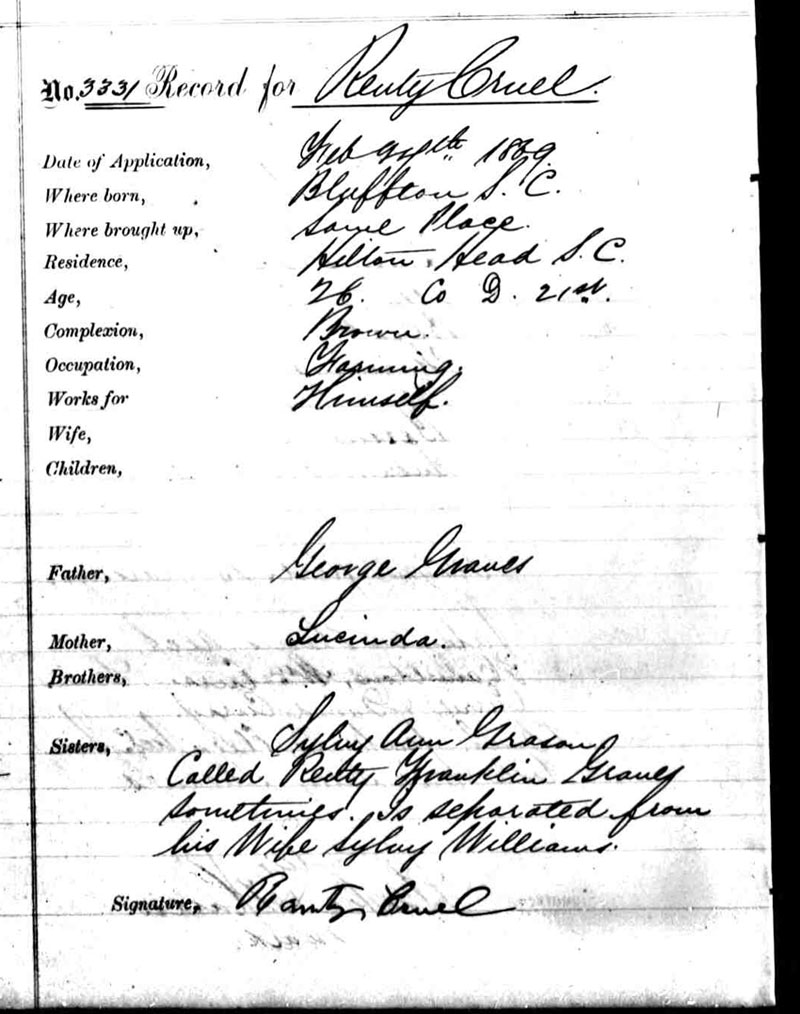 No. 3331 Record for Renty Cruel.
Date of Application, Feb 24th 1869.
Where born, Bluffton S. C.
Where brought up, Same Place.
Residence, Hilton Head S. C.
Age, 26. Co D. 21st.
Complexion, Brown.
Occupation, Farming.
Works for Himself.
Wife,
Children,
Father, George Graves
Mother, Lucinda.
Brothers,
Sisters, Sylvy Ann Grason
Called Renty Franklin Graves
sometimes. Is separated from
his Wife Sylvy Williams.
Signature, Renty Cruel